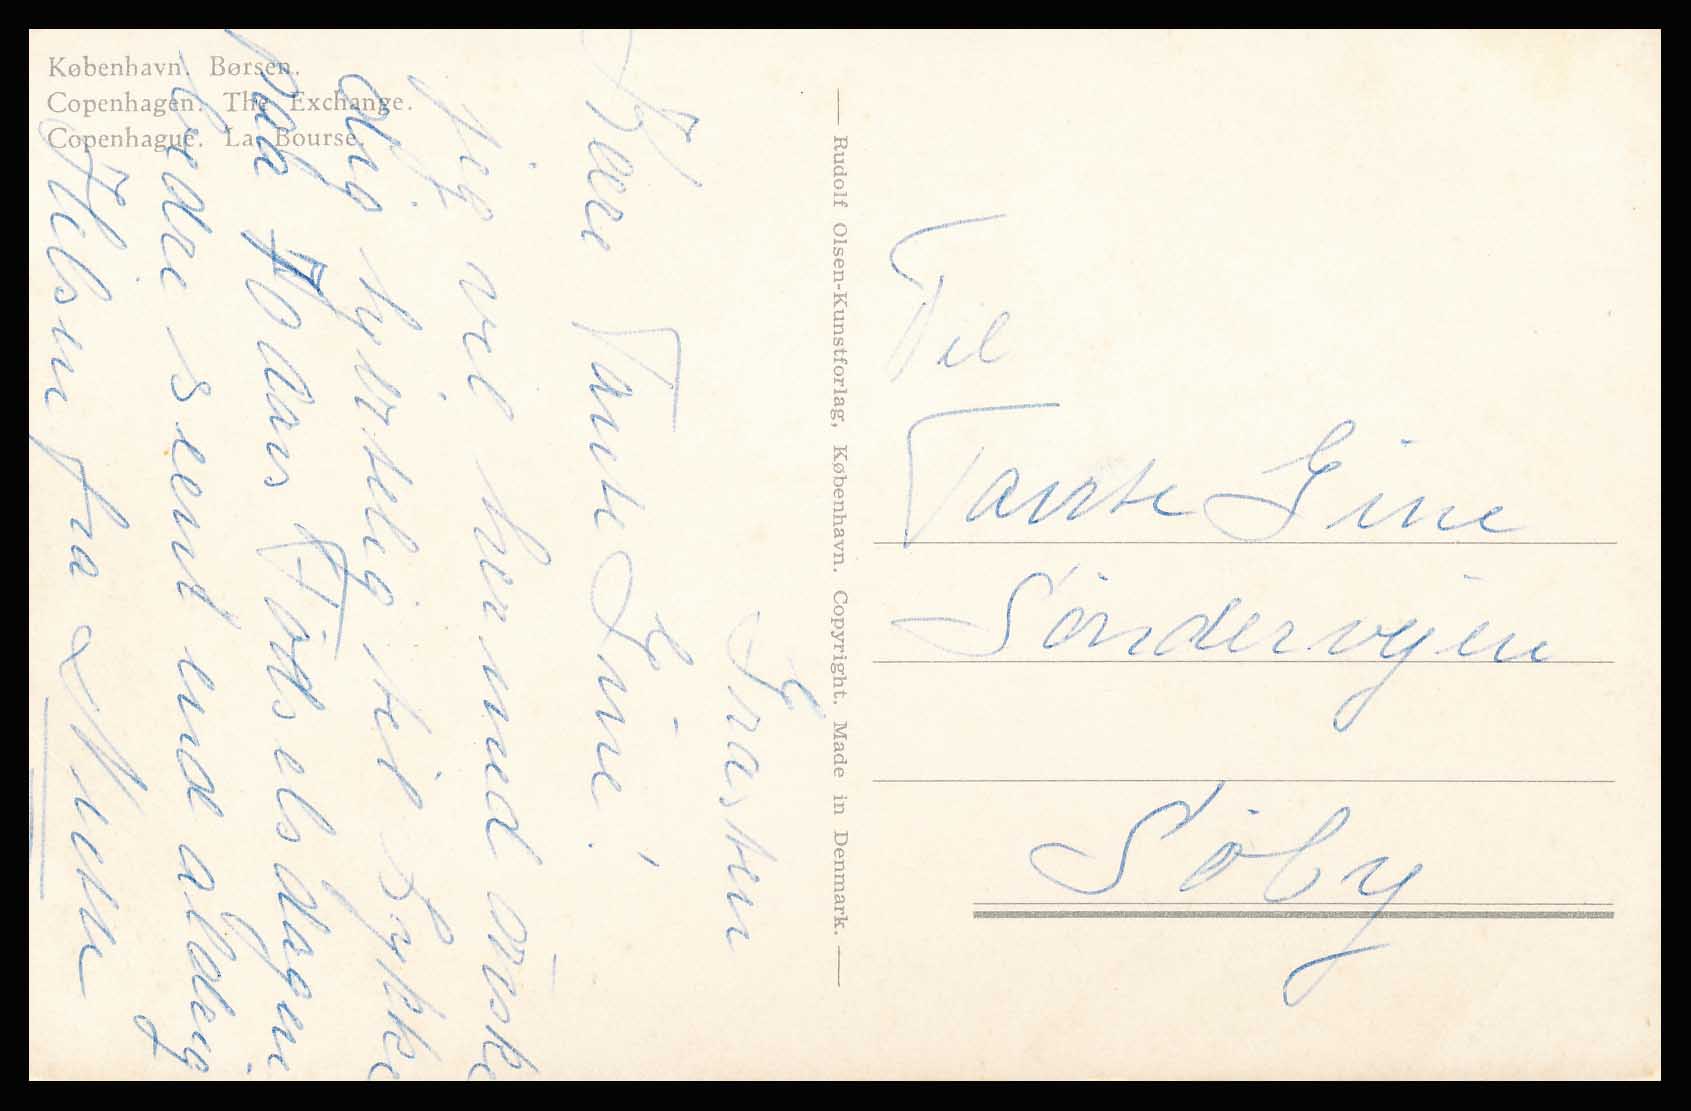 København. Børsen.
Copenhagen. The Exchange.
Copenhague. La Bourse.
Graasten
Kære Tante Gine!
Jeg vil hermed ønske
dig hjertelig til Lykke
paa Födselsdagen
bedre seent end aldrig
Hilsen fra
Rudolf Olsen-Kunstforlag, København. Copyright. Made in Denmark.
Til
Tante Gine
Söndervejen
Søby